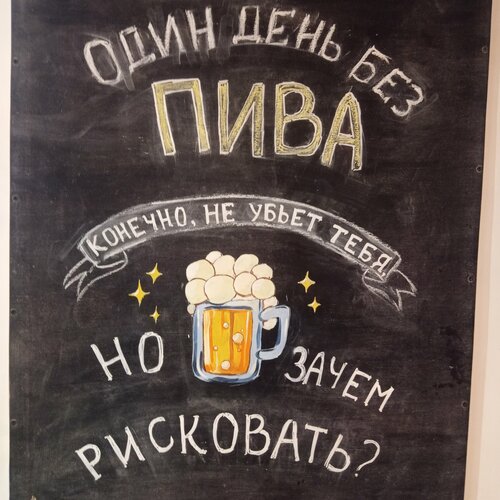 ОДИН ДЕНЬ БЕЗ
ПИВА
КОНЕЧНО, НЕ УБЬЕТ ТЕБЯ,
НО ЗАЧЕМ
РИСКОВАТЬ?